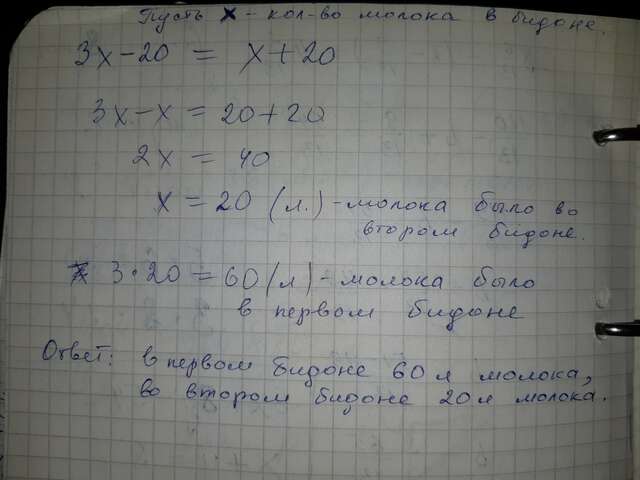 Пусть x - кол-во молока в бидоне.
3x-20 = x+20
3x-x = 20+20
2x = 40
x = 20 (л.) - молока было во
втором бидоне.
3·20 = 60 (л) - молока было
в первом бидоне
Ответ: в первом бидоне 60 л молока,
во втором бидоне 20 л молока.